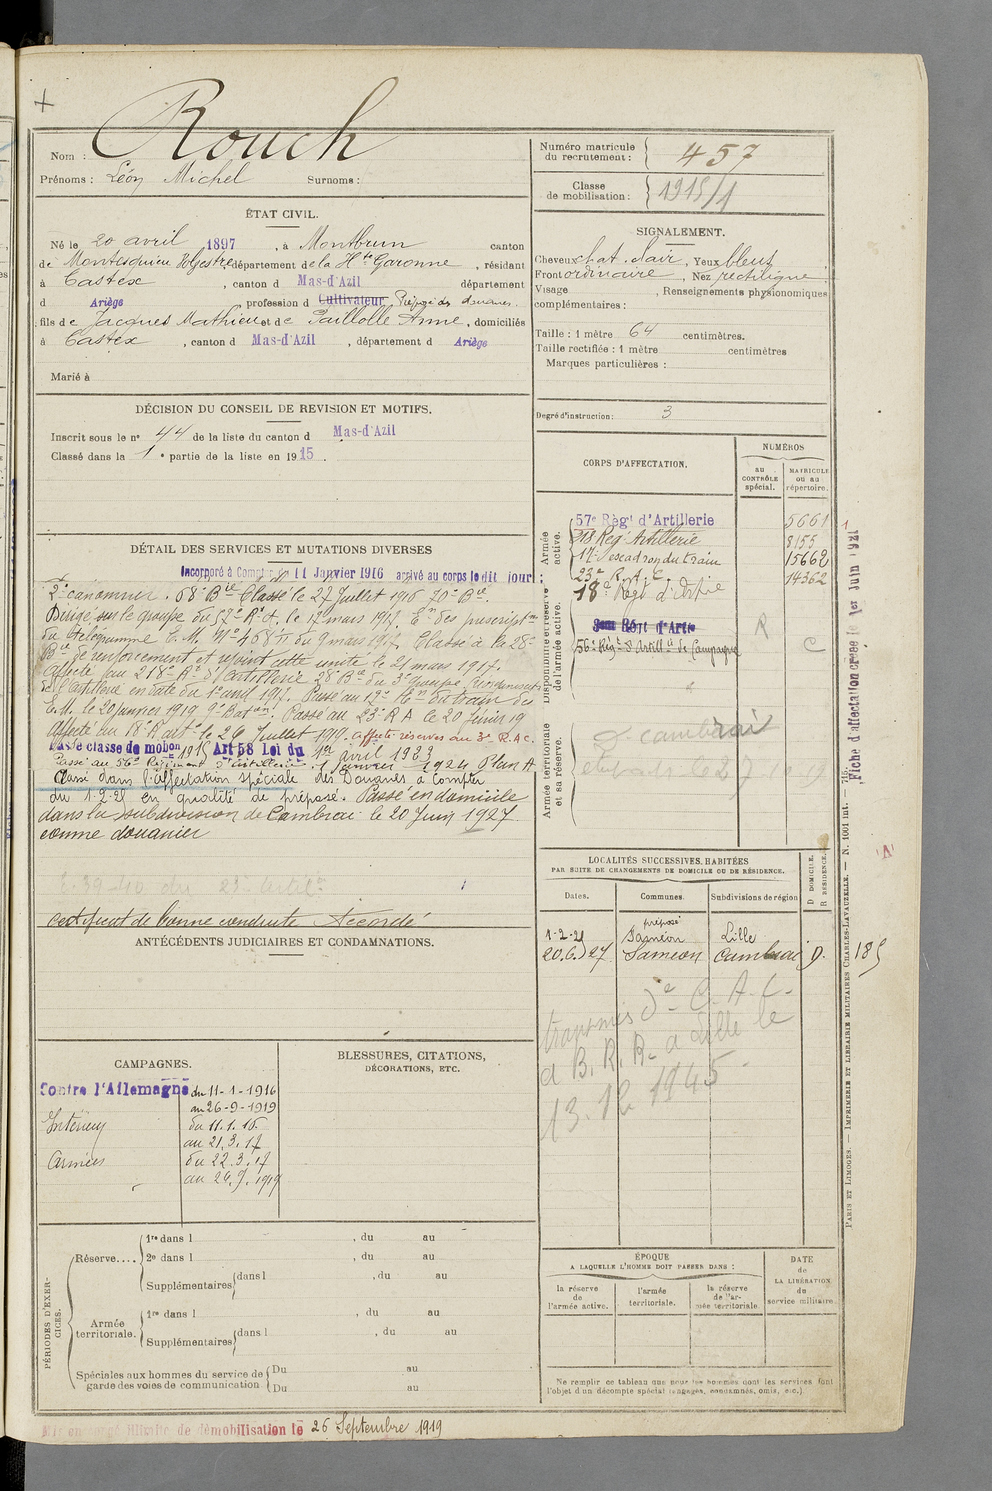 Rouch
Nom :
Prénoms : Léon Michel Surnoms :
Numéro matricule du recrutement : 457
Classe de mobilisation : 1915/1
ÉTAT CIVIL.
Né le 20 avril 1897, à Montbrun canton
de Montesquieu Volvestre département de la Hte Garonne, résidant
à Castex, canton d Mas-d'Azil département
d Ariège, profession d Cultivateur Préposé des douanes.
fils de Jacques Mathieu et de Paillolle Anne, domiciliés
à Castex, canton d Mas-d'Azil, département d Ariège
Marié à
SIGNALEMENT.
Cheveux chat. clair, Yeux bleus
Front ordinaire, Nez rectiligne
Visage , Renseignements physionomiques
complémentaires :
Taille : 1 mètre 64 centimètres.
Taille rectifiée : 1 mètre centimètres
Marques particulières :
Degré d'instruction : 3
DÉCISION DU CONSEIL DE REVISION ET MOTIFS.
Inscrit sous le no 44 de la liste du canton d Mas-d'Azil
Classé dans la 1e partie de la liste en 1915.
DÉTAIL DES SERVICES ET MUTATIONS DIVERSES
Incorporé à Compter du 11 Janvier 1916 arrivé au corps le dit jour
2e canonnier. 68e Bie Classé le 27 Juillet 1916 70e Bie.
Dirigé sur le groupe du 57e Rt d'. le 17 mars 1917. En des prescriptons
du télégramme C. M. No 468 du 9 mars 1917. Classé à la 28e
Bie de renforcement et rejoint cette unité le 21 mars 1917.
Affecté au 218e Rt d'artillerie 28e Bie du 3e groupe
de l'artillerie en date du 1er avril 1917. Passé au 17e du train des
E.M. le 20 janvier 1919 Passé au 23e R A le 20 février 19
Affecté au 18e R art le 26 Juillet 1919. affecté réserves au 3e R.A.C.
Passé classe de mobon 1915 Art 58 Loi du 1er avril 1923
Passé au 56e Régiment d'artillerie 1 Janvier 1924 Plan A
Classé dans l'affectation spéciale des Douanes à compter
du 1-2-21 en qualité de préposé. Passé en domicile
dans la subdivision de Cambrai le 20 Juin 1927
comme douanier
certificat de bonne conduite Accordé
ANTÉCÉDENTS JUDICIAIRES ET CONDAMNATIONS.
CORPS D'AFFECTATION.
NUMÉROS
au CONTRÔLE spécial.
MATRICULE ou au répertoire.
Disponibilité et réserve de l'armée active.
Armée active.
57e Règt d'Artillerie 5661
218 Reg. Artillerie 8155
17e escadron du train 15662
23e 14362
18e Régt d'Artie
56e Règt d'Artillie de Campagne
R
C
Armée territoriale et sa réserve.
LOCALITÉS SUCCESSIVES HABITÉES
PAR SUITE DE CHANGEMENTS DE DOMICILE OU DE RÉSIDENCE.
D DOMICILE.
R RÉSIDENCE.
Dates. Communes. Subdivisions de région
préposé
1-2-21 Saméon Lille
20.6.27 Saméon Cambrai D.
185
transmis
à B. R. R. à Lille le
13.12.1945
CAMPAGNES.
Contre l'Allemagne du 11-1-1916
au 26-9-1919
Intérieur du 11.1.16
au 21.3.17
Armées du 22.3.17
au 26.9.1919
BLESSURES, CITATIONS,
DÉCORATIONS, ETC.
PÉRIODES D'EXERCICES.
Réserve....
1re dans l , du au
2e dans l , du au
Supplémentaires dans l , du au
Armée territoriale.
1re dans l , du au
Supplémentaires dans l , du au
Spéciales aux hommes du service de garde des voies de communication
Du au
Du au
ÉPOQUE
A LAQUELLE L'HOMME DOIT PASSER DANS :
la réserve de l'armée active.
l'armée territoriale.
la réserve de l'armée territoriale.
DATE de LA LIBÉRATION du service militaire.
Ne remplir ce tableau que pour les hommes dont les services font
l'objet d'un décompte spécial (engagés, condamnés, omis, etc.).
démobilisation le 26 Septembre 1919
Fiche d'affectation créée le 1er Juin 1921
PARIS ET LIMOGES. — IMPRIMERIE ET LIBRAIRIE MILITAIRES CHARLES-LAVAUZELLE. — N. 1001 int.